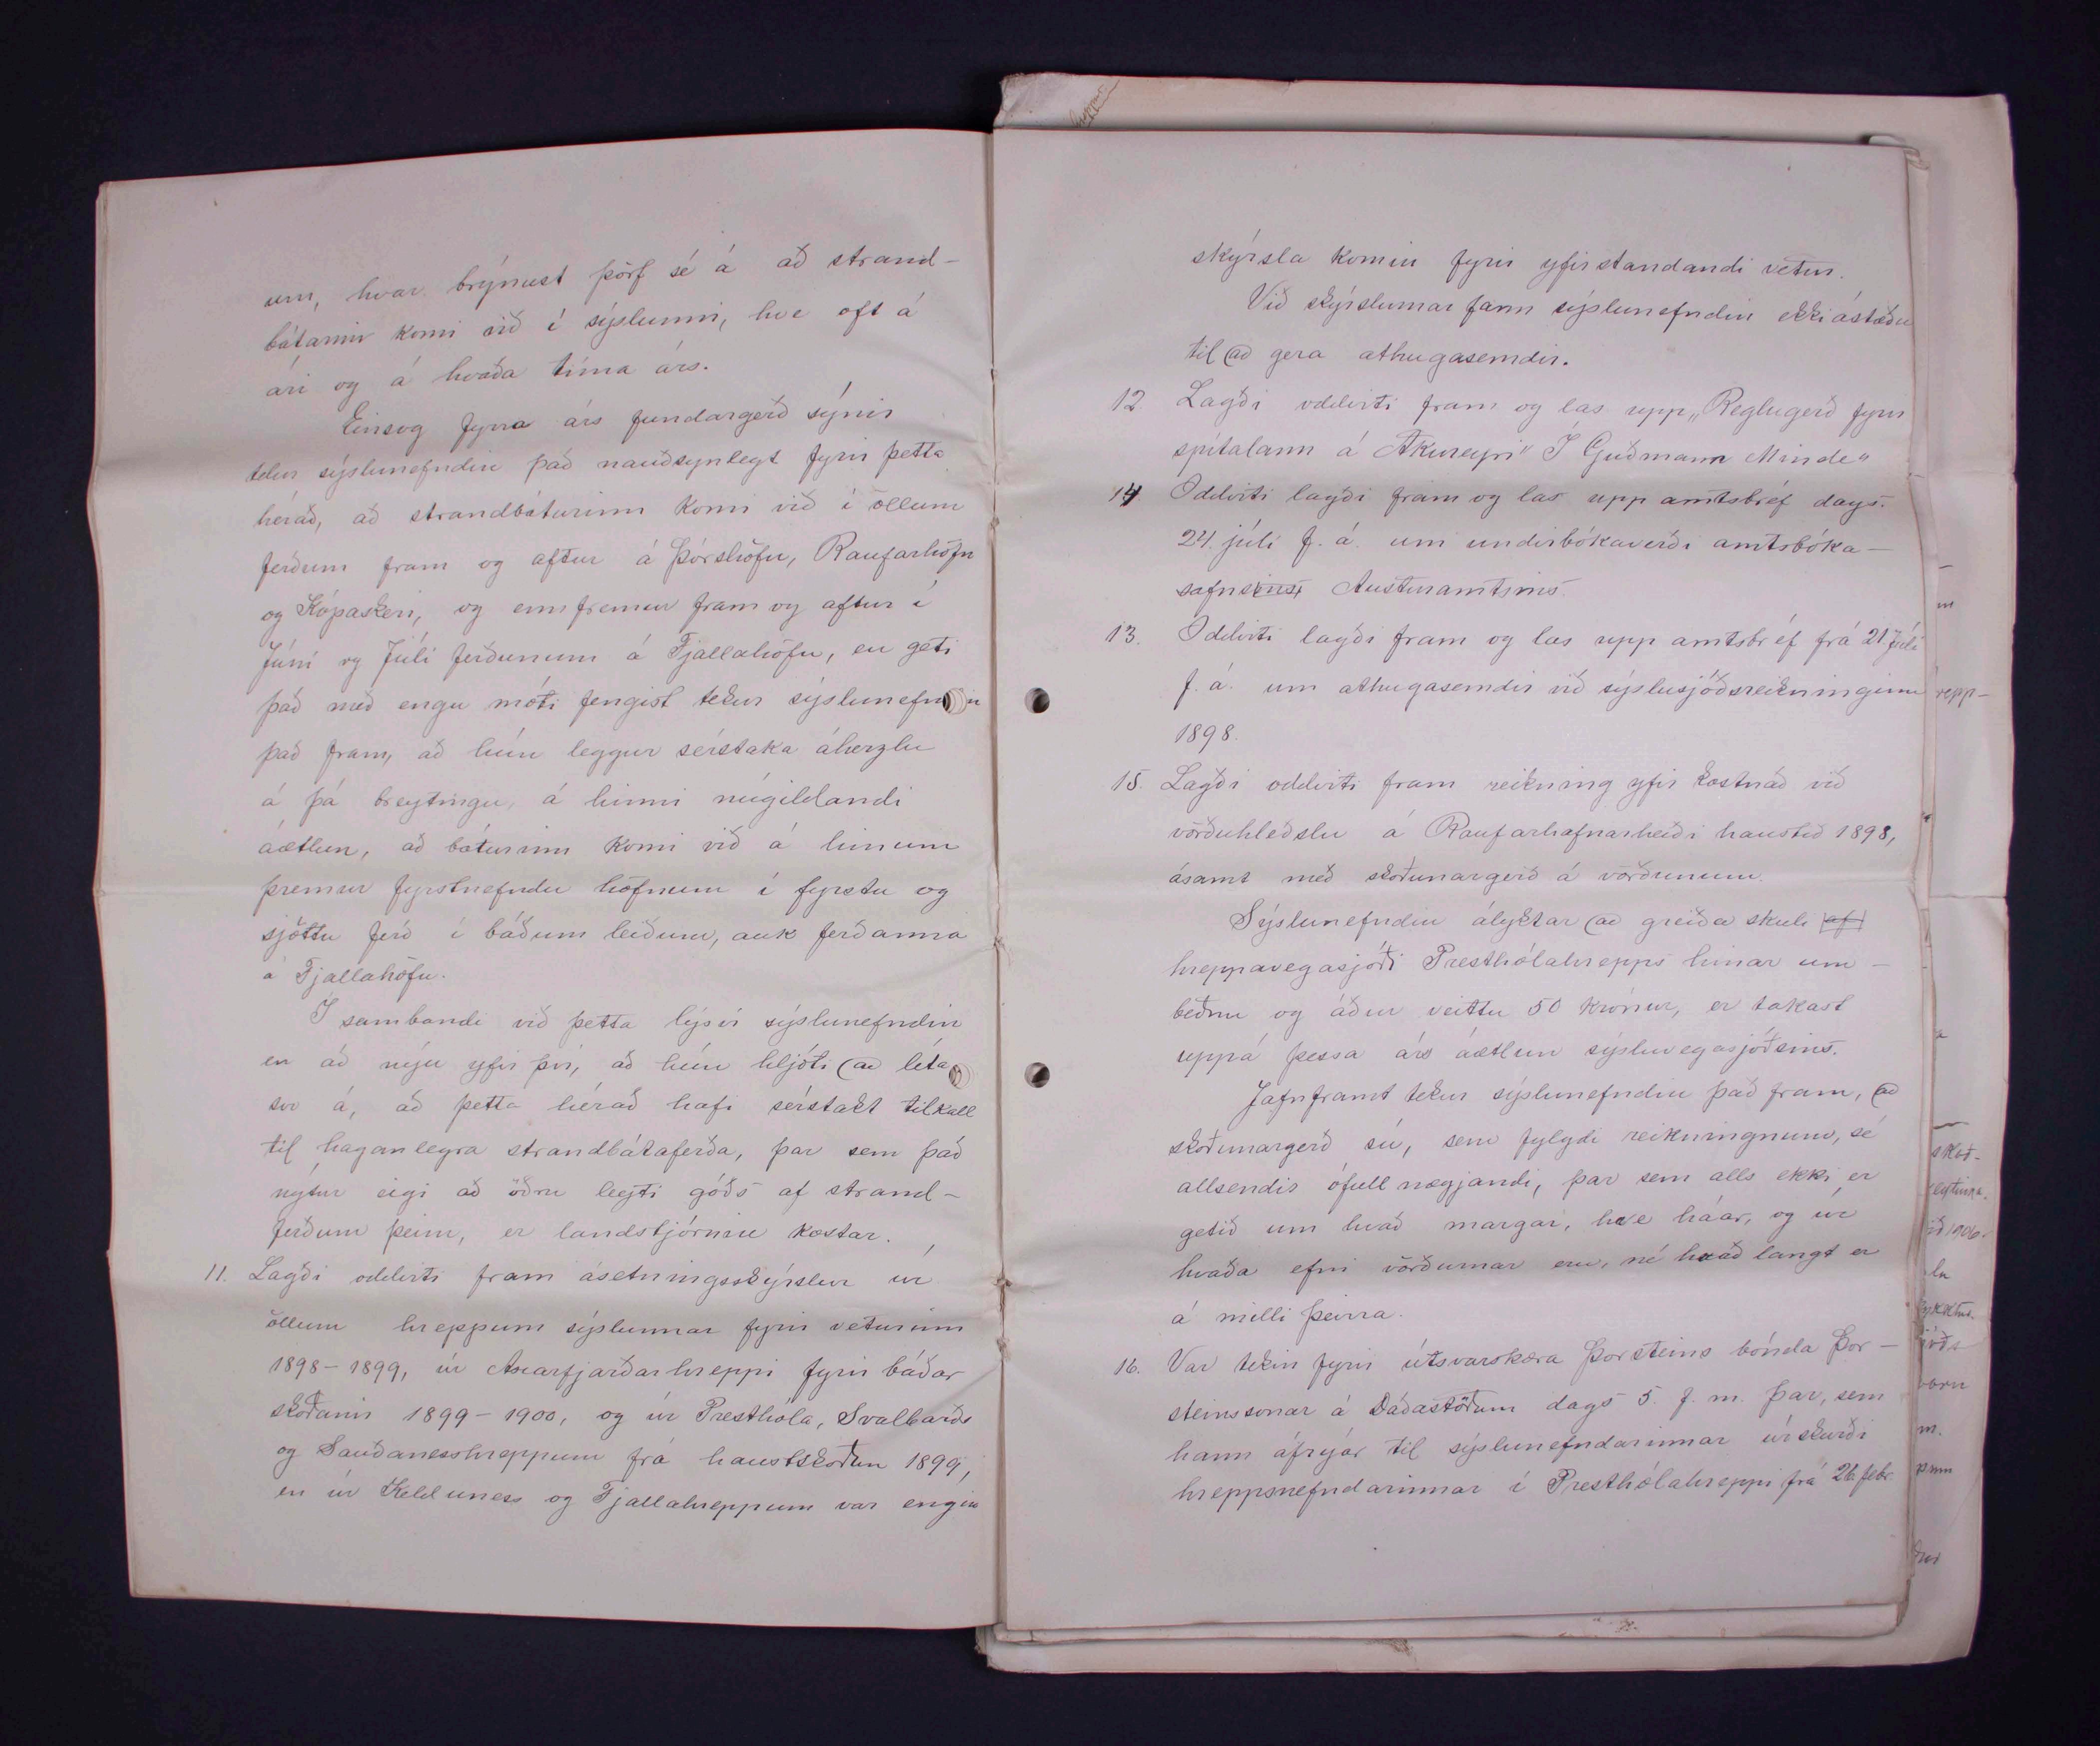 um, hvar brýnust þörf sé á að strand-
bátarnir komi við í sýslunni, hve oft á
ári og á hvaða tíma árs.
Einsog fyrra árs fundargerð sýnir
telur sýslunefndin það nauðsynlegt fyrir þetta
hérað, að strandbáturinn komi við í öllum
ferðum fram og aftur á Þórshöfn, Raufarhöfn
og Kópaskeri, og ennfremur fram og aftur í
Júní og Júlí ferðunum á Fjallahöfn, en geti
það með engu móti fengist tekur sýslunefndin
það fram, að hún leggur sérstaka áherzlu
á þá breytingu, á hinni núgildandi
áætlun, að báturinn komi við á hinum
þremur fyrstnefndu höfnum í fyrstu og
sjöttu ferð í báðum leiðum, auk ferðanna
á Fjallahöfn.
Í sambandi við þetta lýsir sýslunefndin
en að nýju yfir því, að hún hljóti að líta
svo á, að þetta hérað hafi sérstakt tilkall
til haganlegra strandbátaferða, þar sem það
nýtur eigi að öðru leyti góðs af strand-
ferðum þeim, er landstjórnin kostar.
11. Lagði oddviti fram ásetningsskýrslur úr
öllum hreppum sýslunnar fyrir veturinn
1898-1899, úr Axarfjarðarhreppi fyrir báðar
skoðanir 1899-1900, og úr Presthóla, Svalbarðs
og Sauðanesshreppum frá haustskoðun 1899,
en úr Kelduness og Fjallahreppum var engin
skýrsla komin fyrir yfirstandandi vetur.
Við skýrslurnar fann sýslunefndin ekki ástæðu
til að gera athugasemdir.
12 Lagði oddviti fram og las upp „Reglugerð fyrir
spítalann á Akureyri" Í Guðmann Minde"
14 Oddviti lagði fram og las upp amtsbréf dags.
24. júlí f. á. um undirbókaverði amtsbóka-
safnsins Austuramtsins.
13. Oddviti lagði fram og las upp amtsbréf frá 21 Júlí
f. á. um athugasemdir við sýslusjóðsreikninginn
1898.
15. Lagði oddviti fram reikning yfir kostnað við
vörðuhleðslu á Raufarhafnarheiði haustið 1898,
ásamt með skoðunargerð á vörðunum.
Sýslunefndin ályktar að greiða skuli af
hreppavegasjóði Presthólahrepps hinar um-
beðnu og áður veittu 50 krónur, er takast
uppá þessa árs áætlun sýsluvegasjóðsins.
Jafnframt tekur sýslunefndin það fram, að
skoðunargerð sú, sem fylgdi reikningnum, sé
allsendis ófullnægjandi, þar sem alls ekki er
getið um hvað margar, hve háar, og úr
hvaða efni vörðurnar eru, né hvað langt er
á milli þeirra.
16. Var tekin fyrir útsvarskæra Þorsteins bónda Þor-
steinssonar á Daðastöðum dags 5. f. m. Þar, sem
hann áfrýjar til sýslunefndarinnar úrskurði
hreppsnefndarinnar í Presthólahreppi frá 26 febr.